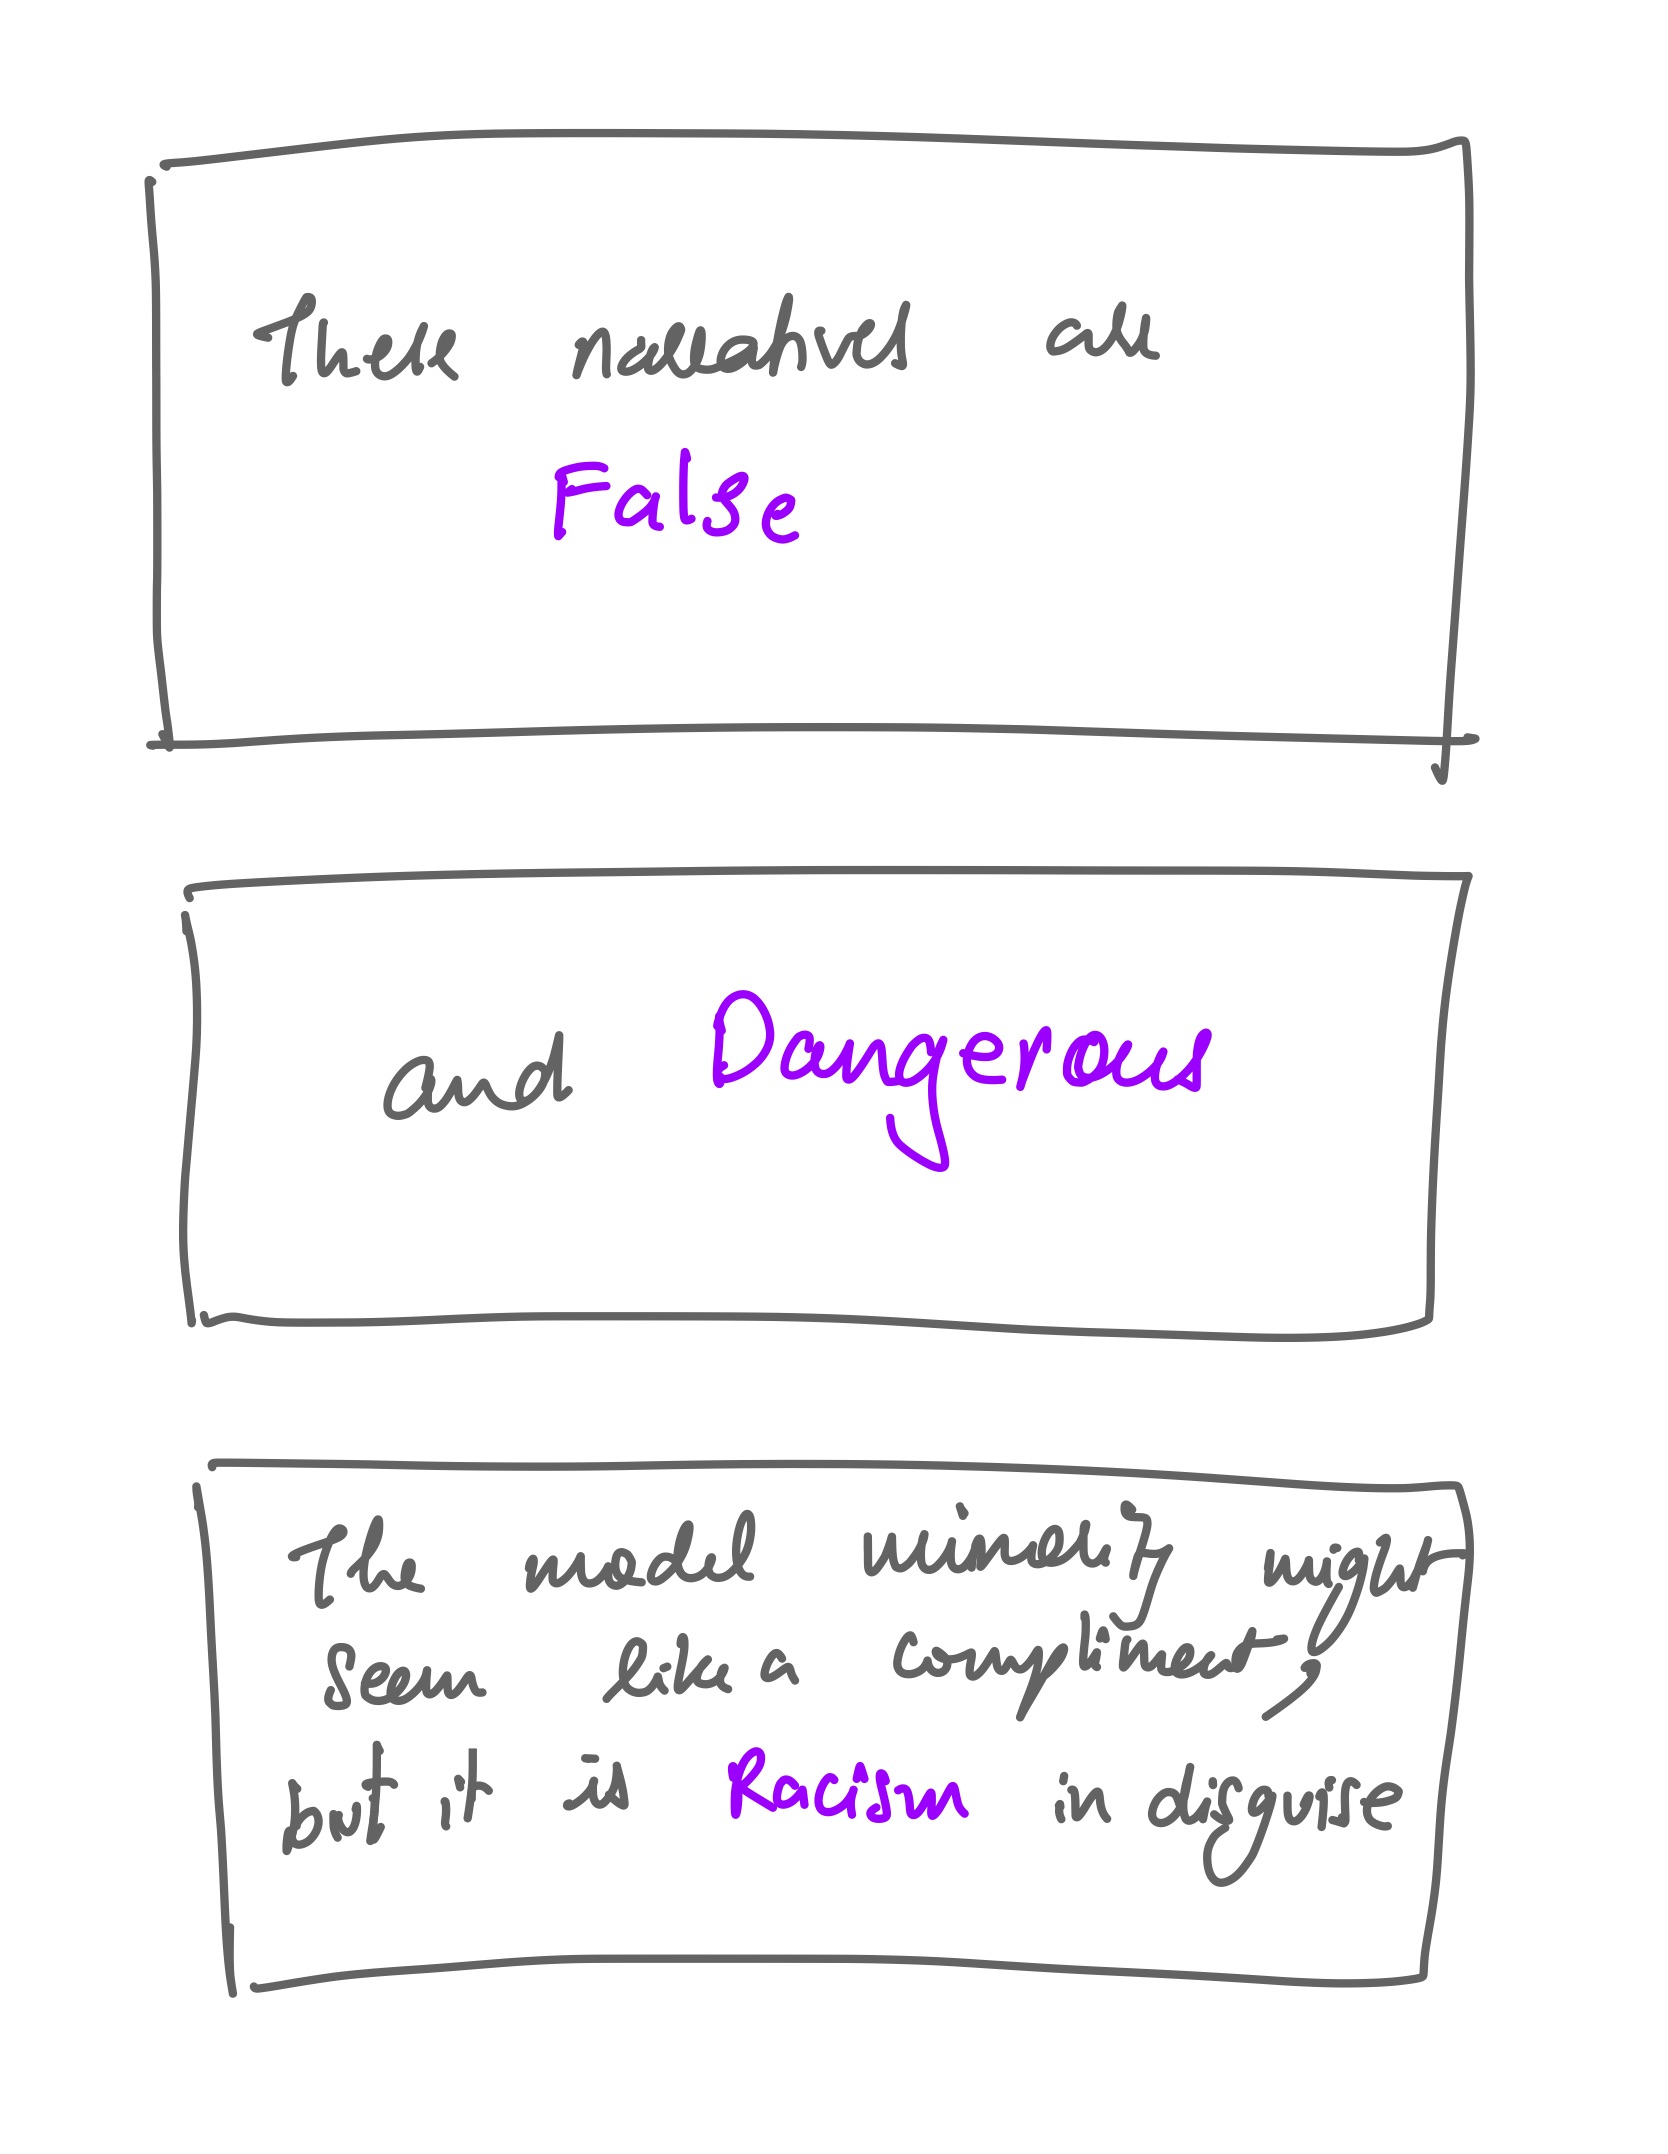 These narratives are
False
and Dangerous
The model minority might
seem like a compliment,
but it is Racism in disguise